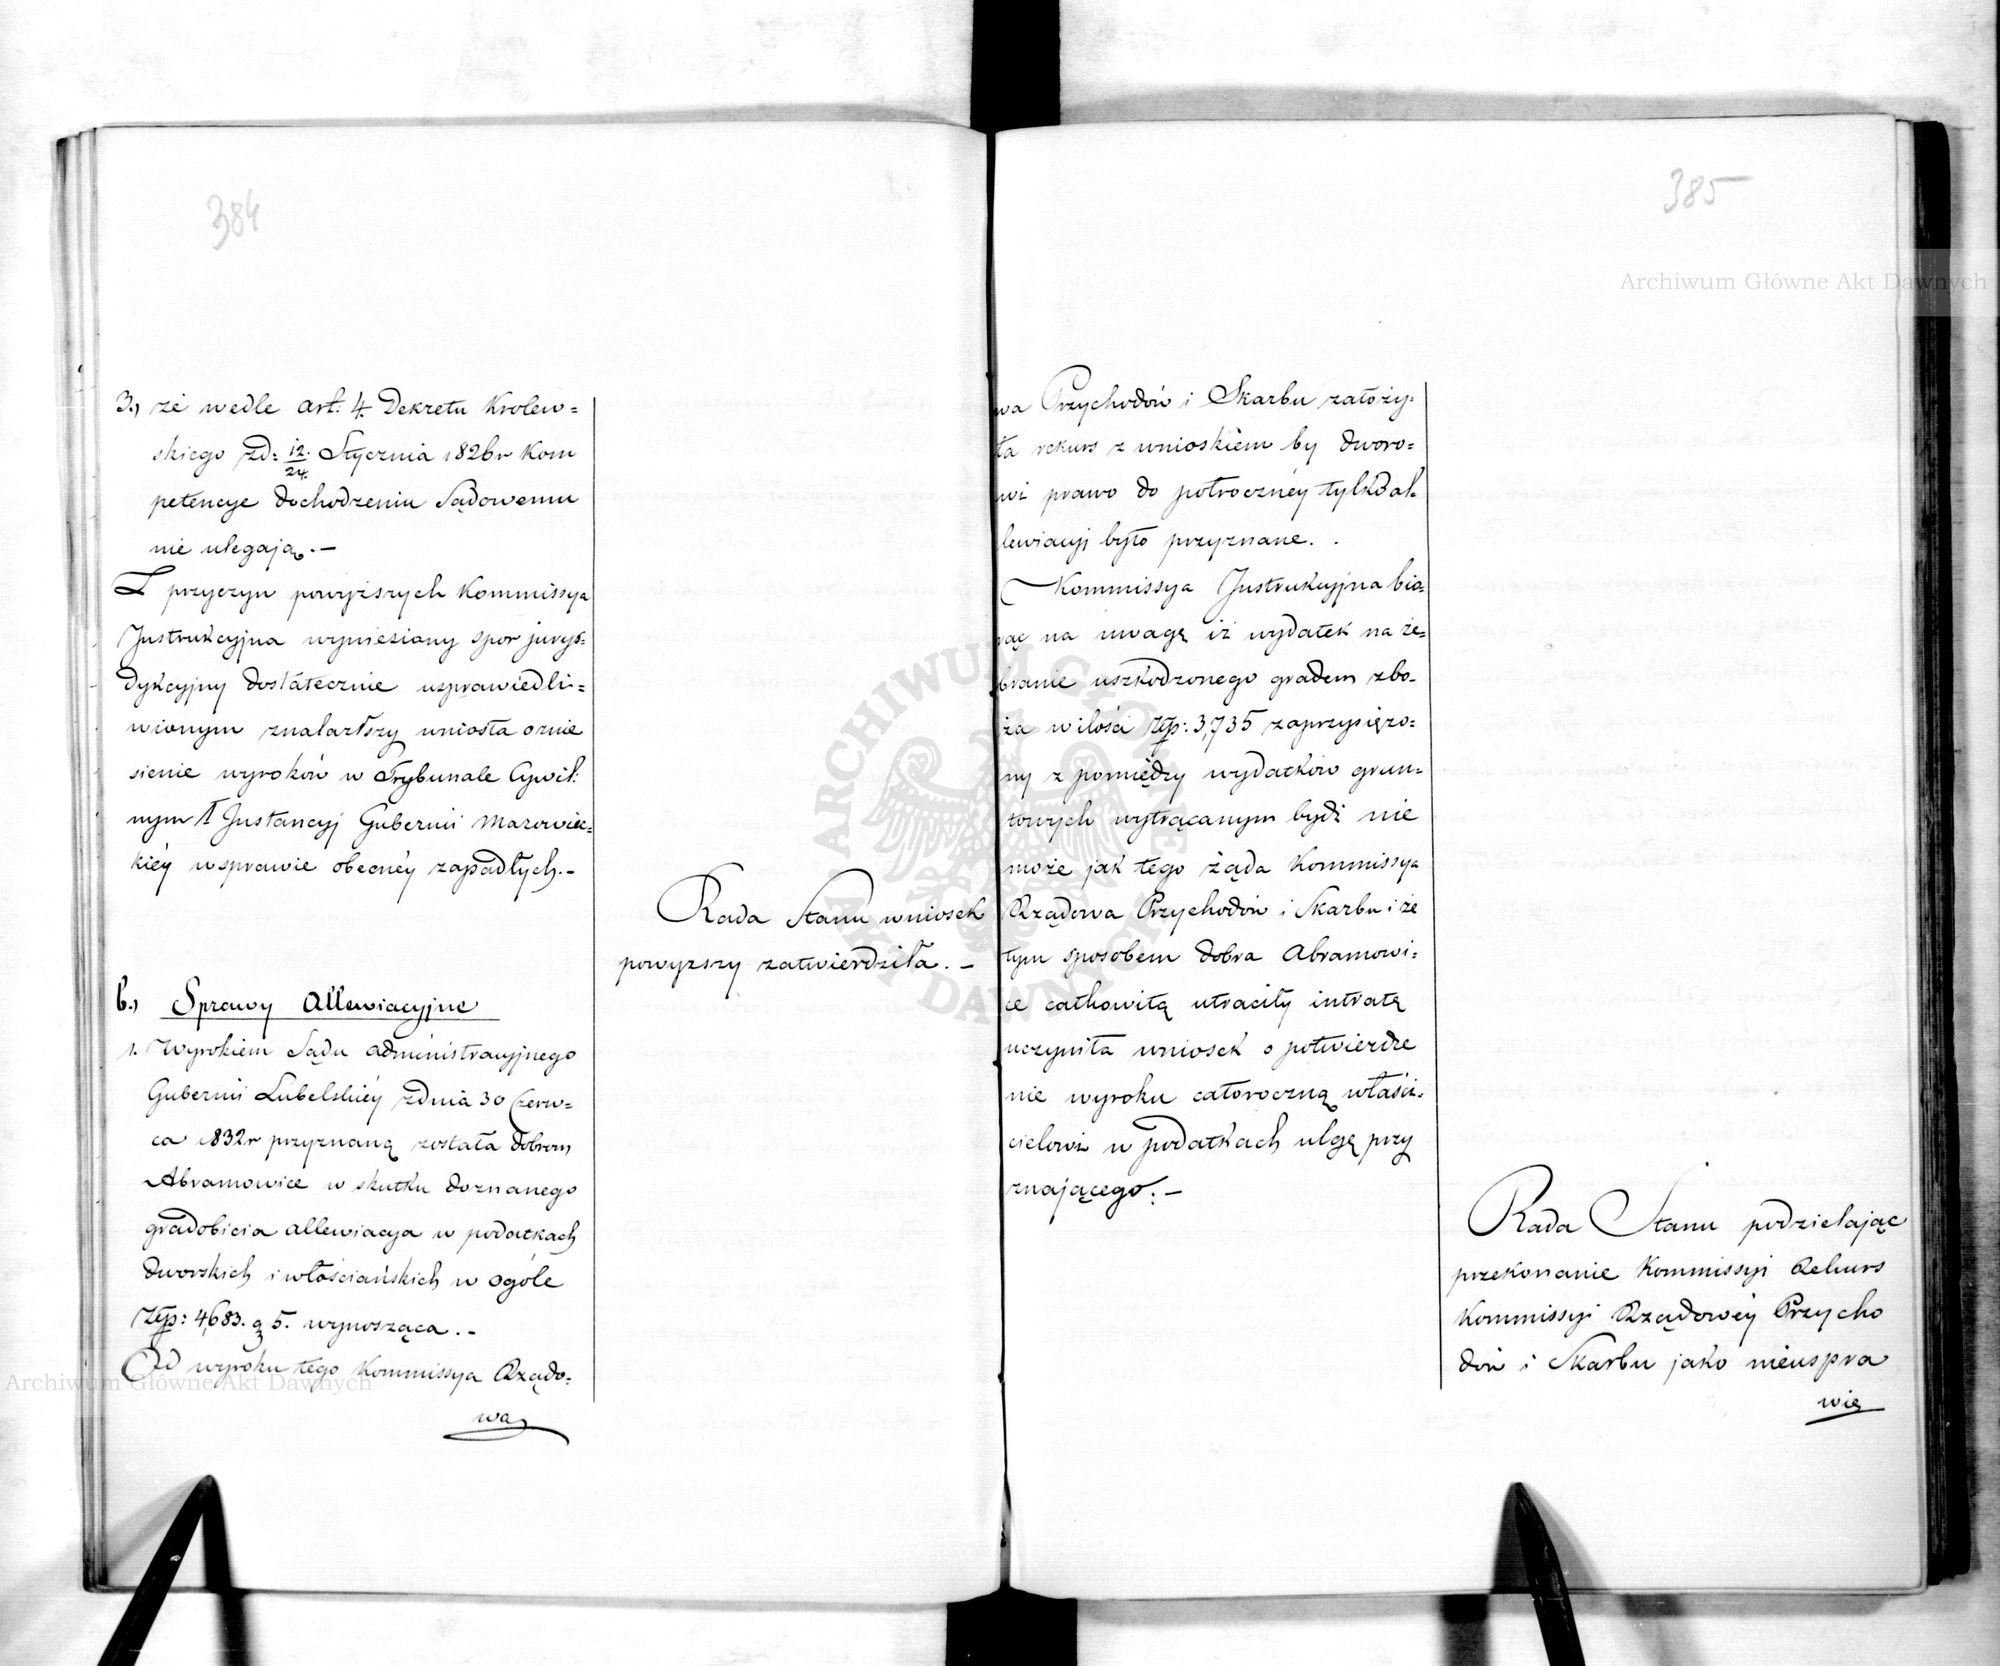 384
3.) że wedle Art: 4. Dekretu Krolew=
skiego zd: 12/24. Stycznia 1826r Kom
petencye dochodzeniu Sądowemu
nie ulegają. —
Z przyczyn powyższych Kommissya
Instrukcyjna wyniesiony spor jurys=
dykcyjny dostatecznie usprawiedli=
wionym znalazłszy wniosła oznie
sienie wyroków w Trybunale Cywil:
nym I Instancyj Gubernii Mazowiec=
kiéy w sprawie obecnéy zapadłych. –
Rada Stanu wniosek
powyzszy zatwierdziła. –
b.) Sprawy Allewiacyjne
1. Wyrokiem Sądu administracyjnego
Gubernii Lubelskiéy zdnia 30 Czerw=
ca 1832r przyznaną została dobrom
Abramowice w skutku doznanego
gradobicia allewiacya w podatkach
dworskich i włościańskich w ogóle
Złp: 4,683. g 5. wynosząca. –
Od wyroku tego Kommissya Rządo=
wa
385
wa Przychodów i Skarbu założy=
ła rekurs z wnioskiem by dworo=
wi prawo do połrocznéy tylko al=
lewiacyj było przyznane. .
Kommissya Instrukcyjna bio=
rąc na uwagę iż wydatek na ze=
branie uszkodzonego gradem zbo=
ża w ilości Złp: 3,735 zaprzysięzo=
ny z pomiędzy wydatków grun=
towych wytrącanym bydź nie
może jak tego żąda Kommissya
Rządowa Przychodów i Skarbu i że
tym sposobem dobra Abramowi=
ce całkowitą utraciły intratę
uczyniła wniosek o potwierdze
nie wyroku całoroczną właści=
cielowi w podatkach ulgę przy
znającego: —
Rada Stanu podzielając
przekonanie Kommissyi Rekurs
Kommissyi Rządowéy Przycho
dów i Skarbu jako nieuspra
wie
Archiwum Główne Akt Dawnych
Archiwum Główne Akt Dawnych
ARCHIWUM GŁÓWNE AKT DAWNYCH